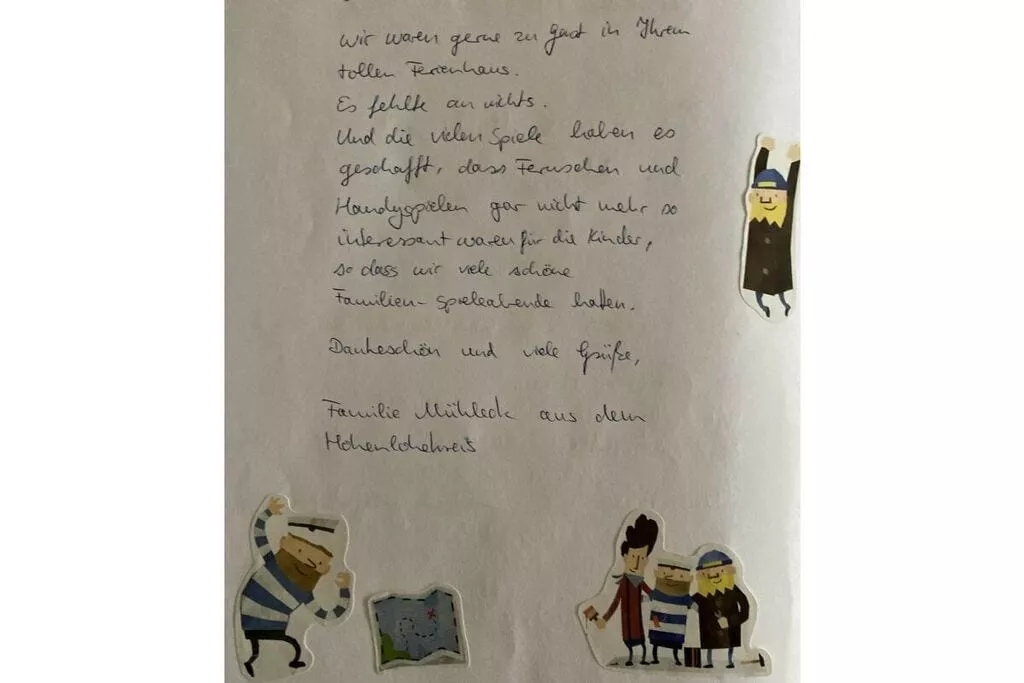 wir waren gerne zu Gast in Ihrem
tollen Ferienhaus.
Es fehlte an nichts.
Und die vielen Spiele haben es
geschafft, dass Fernsehen und
Handyspielen gar nicht mehr so
interessant waren für die Kinder,
so dass wir viele schöne
Familien-Spieleabende hatten.
Dankeschön und viele Grüße,
Familie Mühleck aus dem
Hohenlohekreis